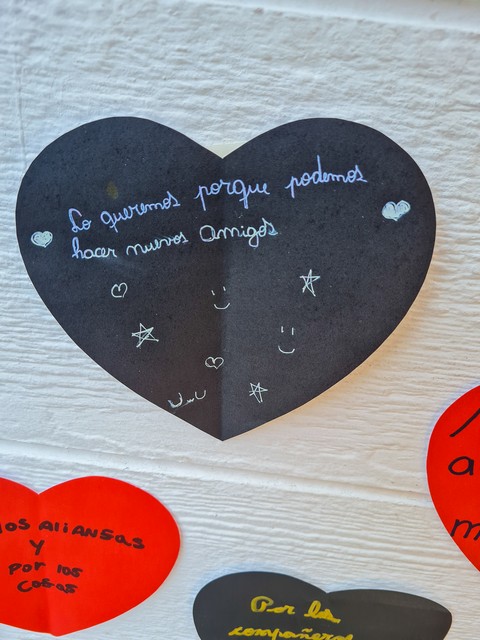 Lo queremos porque podemos
hacer nuevos amigos
los Aliansas
y
por los
cosas
Por los
compañeros
a
m